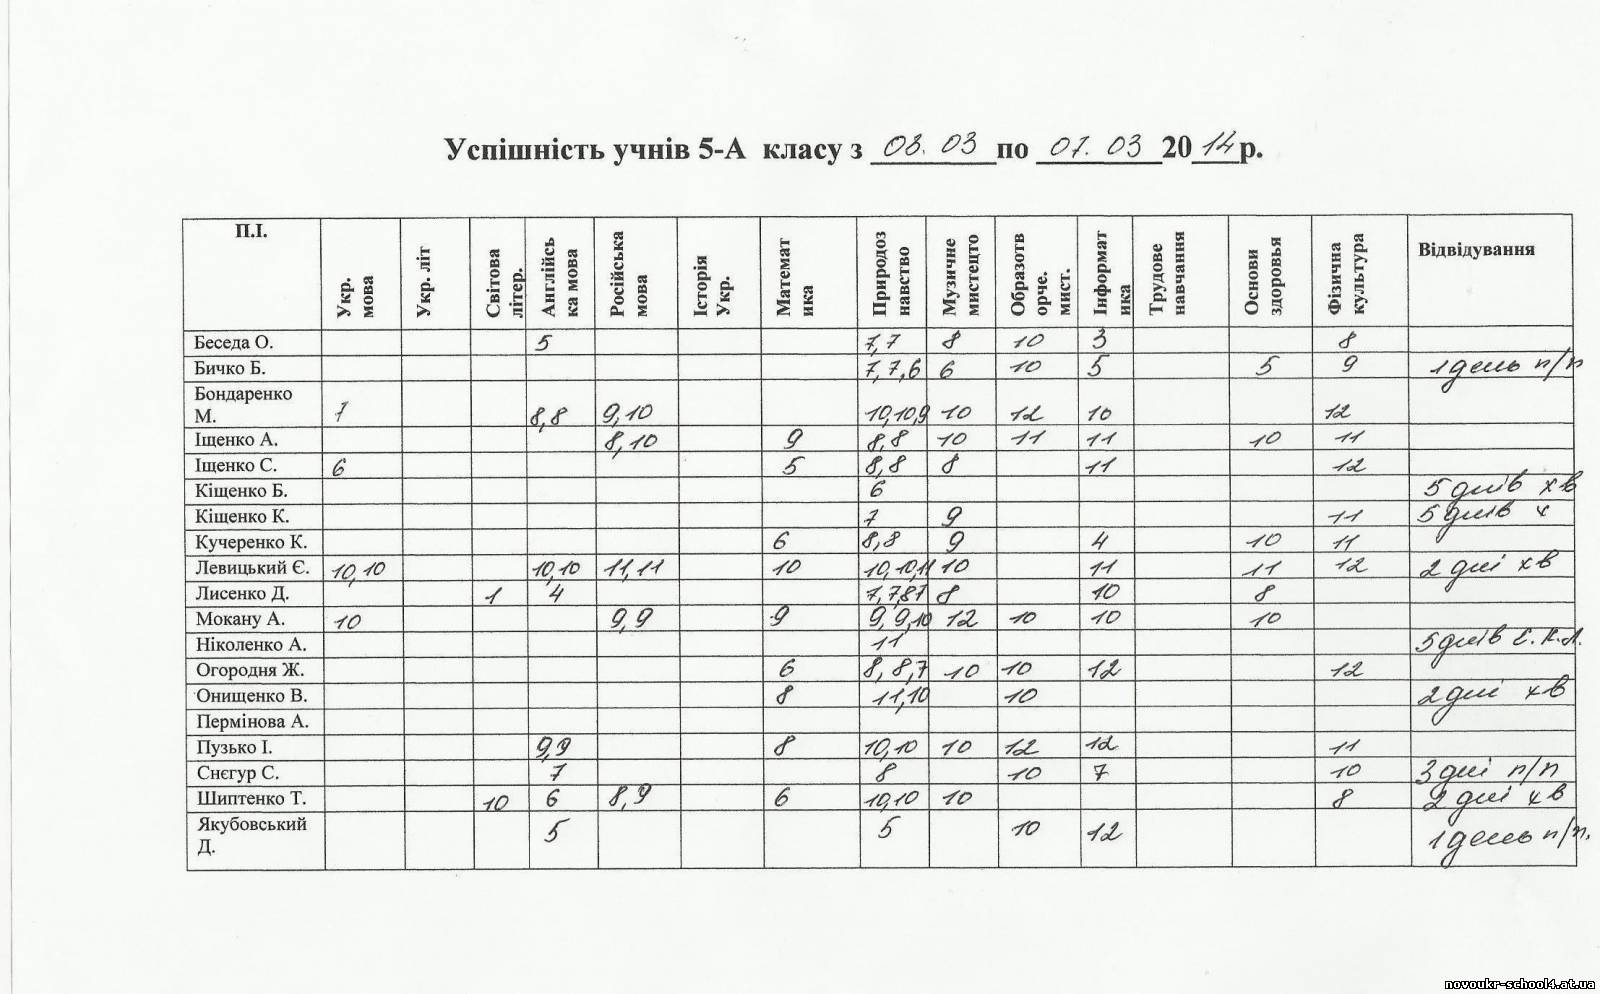 Успішність учнів 5-А класу з 03. 03 по 07. 03 2014р.
П.І. Укр. мова Укр. літ Світова літер. Англійсь ка мова Російська мова Історія Укр. Математ ика Природоз навство Музичне мистецто Образотв орче. мист. Інформат ика Трудове навчання Основи здоровья Фізична культура Відвідування
Беседа О. 5 7,7 8 10 3 8
Бичко Б. 7,7,6 6 10 5 5 9 1 день п/п
Бондаренко
М. 7 8,8 9,10 10,10,9 10 12 10 12
Іщенко А. 8,10 9 8,8 10 11 11 10 11
Іщенко С. 6 5 8,8 8 11 12
Кіщенко Б. 6 5 днів хв
Кіщенко К. 7 9 11 5 днів х
Кучеренко К. 6 8,8 9 4 10 11
Левицький Є. 10,10 10,10 11,11 10 10,10,11 10 11 11 12 2 дні хв
Лисенко Д. 1 4 7,7,8 8 10 8
Мокану А. 10 9,9 9 9,9,10 12 10 10 10
Ніколенко А. 11 5 днів
Огородня Ж. 6 8,8,7 10 10 12 12
Онищенко В. 8 11,10 10 2 дні хв
Пермінова А.
Пузько І. 9,9 8 10,10 10 12 12 11
Снєгур С. 7 8 10 7 10 3 дні п/п
Шиптенко Т. 10 6 8,9 6 10,10 10 8 2 дні хв
Якубовський
Д. 5 5 10 12 1 день п/п.
novoukr-school4.at.ua